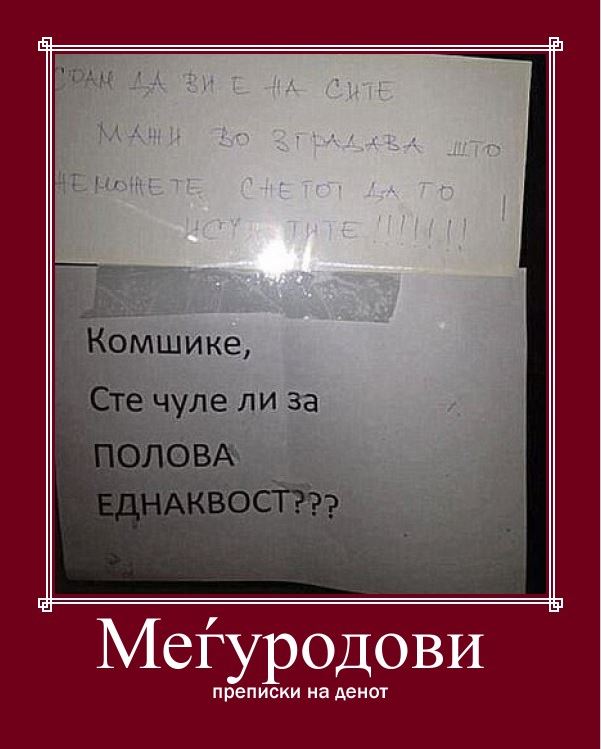 СРАМ ДА ВИ Е НА СИТЕ
МАЖИ ВО ЗГРАДАВА ШТО
НЕМОЖЕТЕ СНЕГОТ ДА ГО
!!!!!!!
Комшике,
Сте чуле ли за
ПОЛОВА
ЕДНАКВОСТ???
Меѓуродови
преписки на денот